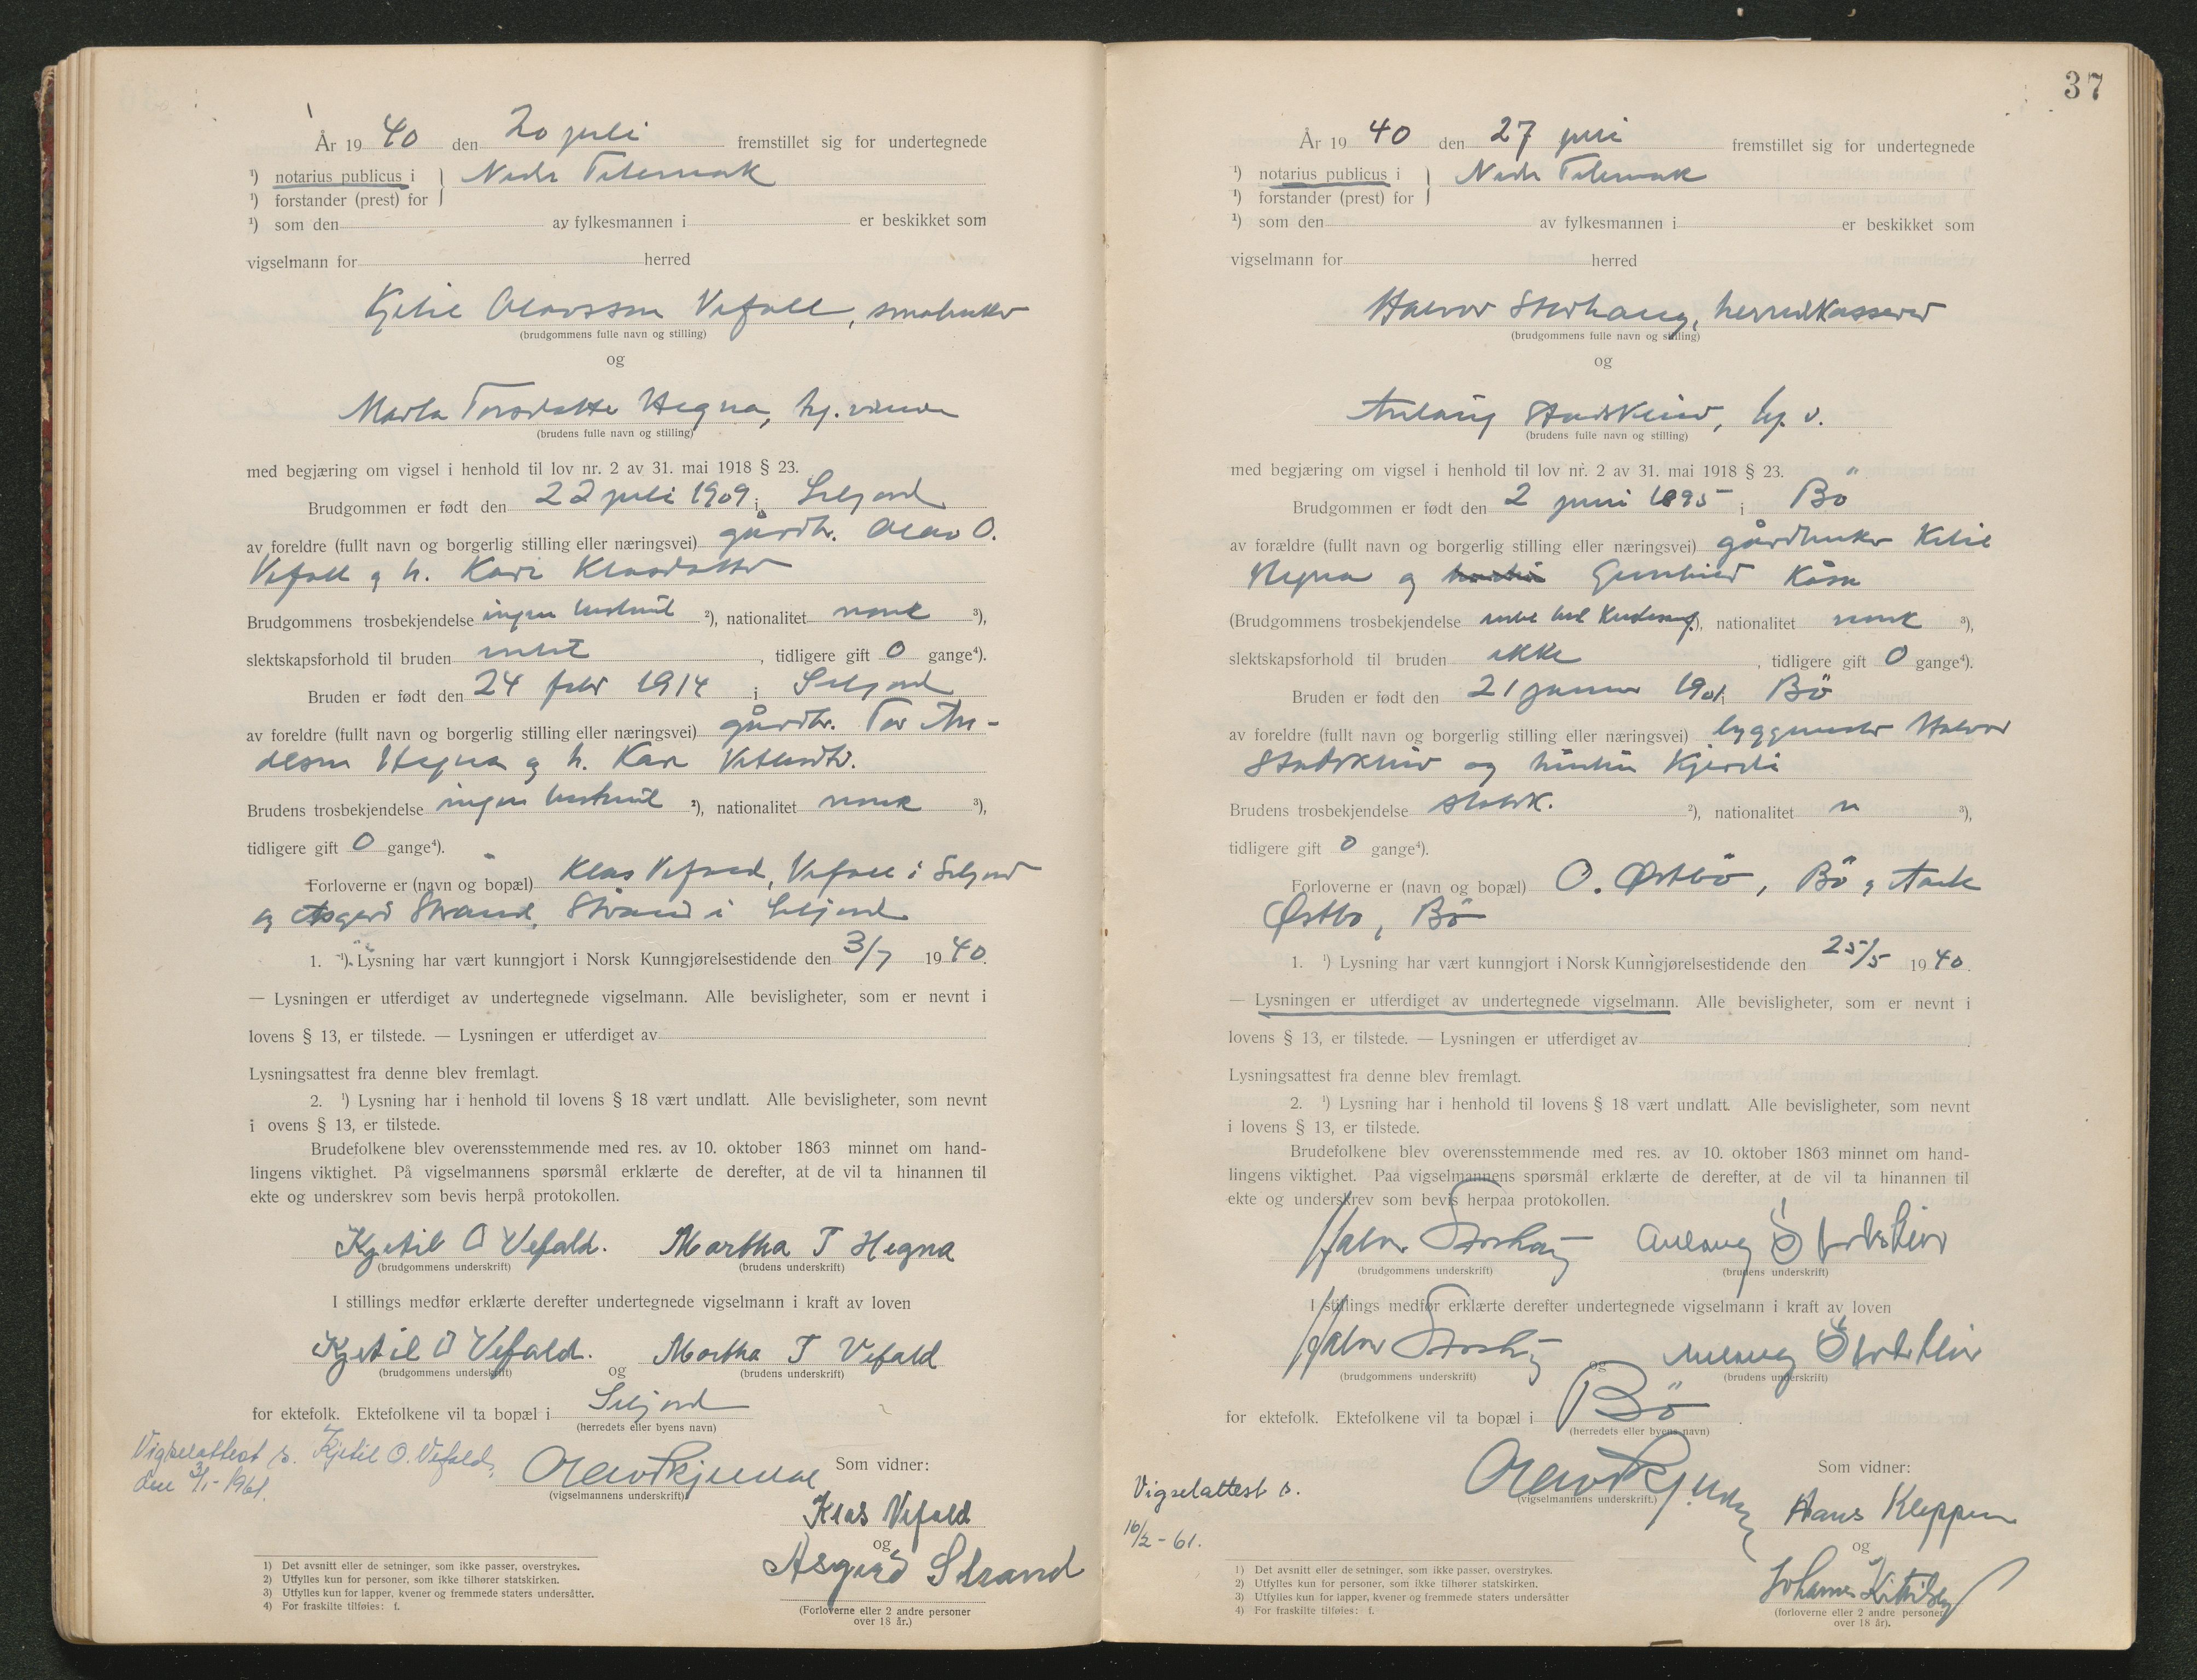 År 1940 den 20 juli fremstillet sig for undertegnede
¹) notarius publicus i Nedr Telemark
¹) forstander (prest) for
¹) som den av fylkesmannen i er beskikket som
vigselmann for herred
Kjetil Olavsson Vefall, småbruker
(brudgommens fulle navn og stilling)
og
Marta Torsdatter Hegna, hj.
(brudens fulle navn og stilling)
med begjæring om vigsel i henhold til lov nr. 2 av 31. mai 1918 § 23.
Brudgommen er født den 22 juli 1909 i Seljord
av foreldre (fullt navn og borgerlig stilling eller næringsvei) gårdbr. Olav O.
Vefall og h. Kari Klasdatter
Brudgommens trosbekjendelse ingen ²), nationalitet norsk ³),
slektskapsforhold til bruden intet, tidligere gift 0 gange⁴).
Bruden er født den 24 febr 1914 i Seljord
av foreldre (fullt navn og borgerlig stilling eller næringsvei) gårdbr. Tor An-
dersen Hegna og h. Kari
Brudens trosbekjendelse ingen ²), nationalitet norsk ³),
tidligere gift 0 gange⁴).
Forloverne er (navn og bopæl) Klas Vefald, Vefall i Seljord
og Asgerd Strand, Strand i Seljord
1. ¹) Lysning har vært kunngjort i Norsk Kunngjørelsestidende den 3/7 1940.
— Lysningen er utferdiget av undertegnede vigselmann. Alle bevisligheter, som er nevnt i
lovens § 13, er tilstede. — Lysningen er utferdiget av
Lysningsattest fra denne blev fremlagt.
2. ¹) Lysning har i henhold til lovens § 18 vært undlatt. Alle bevisligheter, som nevnt
i ovens § 13, er tilstede.
Brudefolkene blev overensstemmende med res. av 10. oktober 1863 minnet om hand-
lingens viktighet. På vigselmannens spørsmål erklærte de derefter, at de vil ta hinannen til
ekte og underskrev som bevis herpå protokollen.
Kjetil O Vefald. Martha T Hegna
(brudgommens underskrift) (brudens underskrift)
I stillings medfør erklærte derefter undertegnede vigselmann i kraft av loven
Kjetil O Vefald. og Martha T Vefald
(brudgommens underskrift) (brudens underskrift)
for ektefolk. Ektefolkene vil ta bopæl i Seljord
(herredets eller byens navn)
Vigselattest s. Kjetil O. Vefald,
den 3/1-1961.
(vigselmannens underskrift)
Som vidner:
Klas Vefald
og
Asgerd Strand
(Forloverne eller 2 andre personer
over 18 år.)
1) Det avsnitt eller de setninger, som ikke passer, overstrykes.
2) Utfylles kun for personer, som ikke tilhører statskirken.
3) Utfylles kun for lapper, kvener og fremmede staters undersåtter.
4) For fraskilte tilføies: f.
37
År 1940 den 27 juli fremstillet sig for undertegnede
¹) notarius publicus i Nedr Telemark
¹) forstander (prest) for
¹) som den av fylkesmannen i er beskikket som
vigselmann for herred
Halvor Storhaug, herredkasserer
(brudgommens fulle navn og stilling)
og
Aulaug Stadskleiv, hj. v.
(brudens fulle navn og stilling)
med begjæring om vigsel i henhold til lov nr. 2 av 31. mai 1918 § 23.
Brudgommen er født den 2 juni 1895 i Bö
av forældre (fullt navn og borgerlig stilling eller næringsvei) gårdbruker Ketil
Hegna og Gunhild Kåsa
(Brudgommens trosbekjendelse ²), nationalitet norsk ³),
slektskapsforhold til bruden ikke, tidligere gift 0 gange⁴).
Bruden er født den 21 januar 1901 i Bö
av foreldre (fullt navn og borgerlig stilling eller næringsvei) byggmester Halvor
Stadskleiv og hustru Kjersti
Brudens trosbekjendelse statsk. ²), nationalitet n ³),
tidligere gift 0 gange⁴).
Forloverne er (navn og bopæl) O. Østbö, Bö og
Østbö, Bö
1. ¹) Lysning har vært kunngjort i Norsk Kunngjørelsestidende den 25/5 1940.
— Lysningen er utferdiget av undertegnede vigselmann. Alle bevisligheter, som er nevnt i
lovens § 13, er tilstede. — Lysningen er utferdiget av
Lysningsattest fra denne blev fremlagt.
2. ¹) Lysning har i henhold til lovens § 18 vært undlatt. Alle bevisligheter, som nevnt
i lovens § 13, er tilstede.
Brudefolkene blev overensstemmende med res. av 10. oktober 1863 minnet om hand-
lingens viktighet. Paa vigselmannens spørsmål erklærte de derefter, at de vil ta hinannen til
ekte og underskrev som bevis herpaa protokollen.
Halvor Storhaug Aulaug Stadskleiv
(brudgommens underskrift) (brudens underskrift)
I stillings medfør erklærte derefter undertegnede vigselmann i kraft av loven
Halvor Storhaug og Aulaug Stadskleiv
(brudgommens underskrift) (brudens underskrift)
for ektefolk. Ektefolkene vil ta bopæl i Bö.
(herredets eller byens navn)
Vigselattest s.
16/2-61.
(vigselmannens underskrift.)
Som vidner:
Hans Kleppen
og
Johannes Kittilsen
(forloverne eller 2 andre personer
over 18 år).
1) Det avsnitt eller de setninger, som ikke passer, overstrykes.
2) Utfylles kun for personer, som ikke tilhører statskirken.
3) Utfylles kun for lapper, kvener og fremmede staters undersåtter
4) For fraskilte tilføies: f.